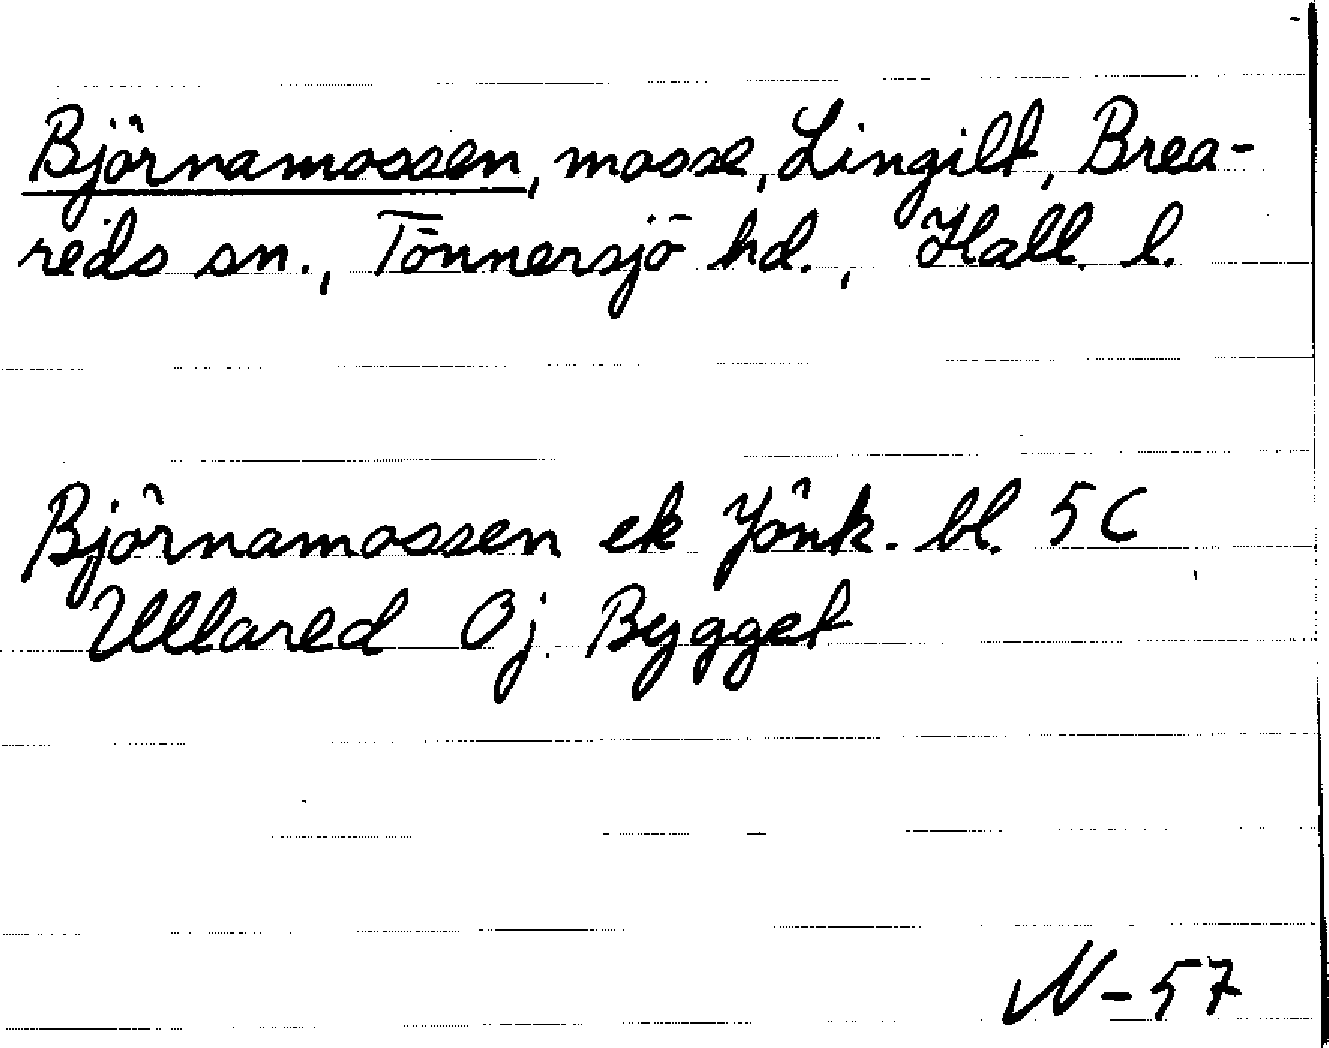 Björnamossen, mosse, Lingilt, Brea-
reds sn., Tönnersjö hd., Hall. l.
Björnamossen ek Jönk. bl. 5C
Ullared Oj. Bygget
N-57